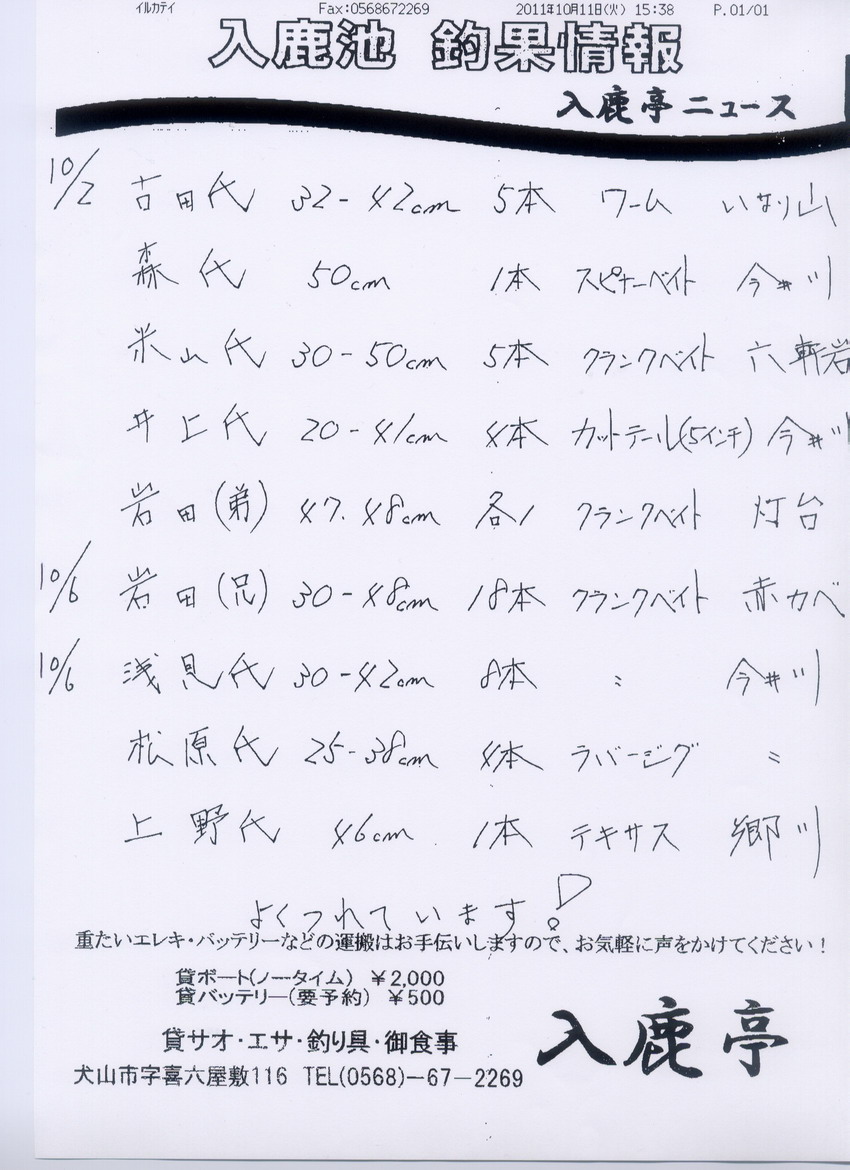 イルカテイ Fax:0568672269 2011年10月11日(火) 15:38 P.01/01
入鹿池 釣果情報
入鹿亭ニュース
10/2 吉田氏 32-42cm 5本 ワーム いなり山
森氏 50cm 1本 スピナーベイト 今井川
米山氏 30-50cm 5本 クランクベイト 六軒岩
井上氏 20-41cm 4本 カットテール(5インチ) 今井川
岩田(弟) 47.48cm 各1 クランクベイト 灯台
10/6 岩田(兄) 30-48cm 18本 クランクベイト 赤カベ
10/6 浅見氏 30-42cm 8本 〃 今井川
松原氏 25-38cm 4本 ラバージグ 〃
上野氏 46cm 1本 テキサス 郷川
よくつれています!
重たいエレキ・バッテリーなどの運搬はお手伝いしますので、お気軽に声をかけてください!
貸ボート(ノータイム) ¥2,000
貸バッテリー(要予約) ¥500
貸サオ・エサ・釣り具・御食事
入鹿亭
犬山市字喜六屋敷116 TEL(0568)-67-2269